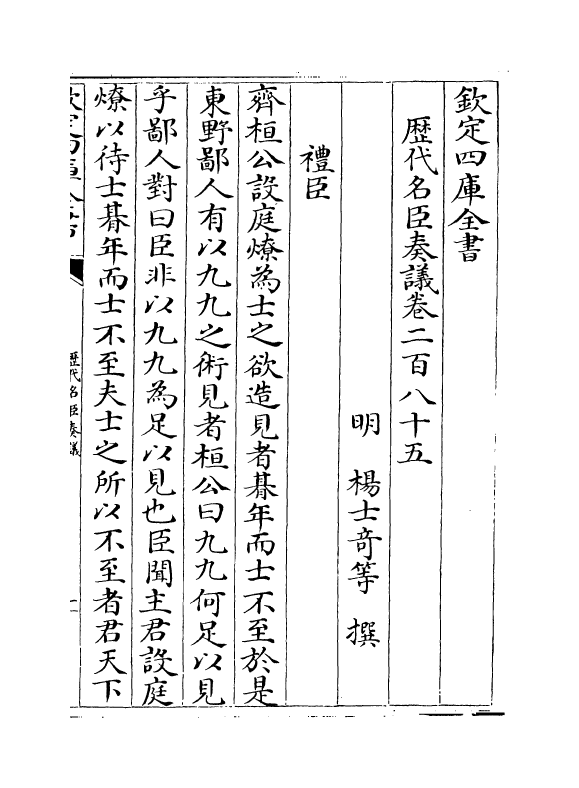 欽定四庫全書
歷代名臣奏議卷二百八十五
明　楊士奇等　撰
禮臣
齊桓公設庭燎為士之欲造見者朞年而士不至於是
東野鄙人有以九九之術見者桓公曰九九何足以見
乎鄙人對曰臣非以九九為足以見也臣聞主君設庭
燎以待士朞年而士不至夫士之所以不至者君天下
欽定四庫全書
歷代名臣奏議